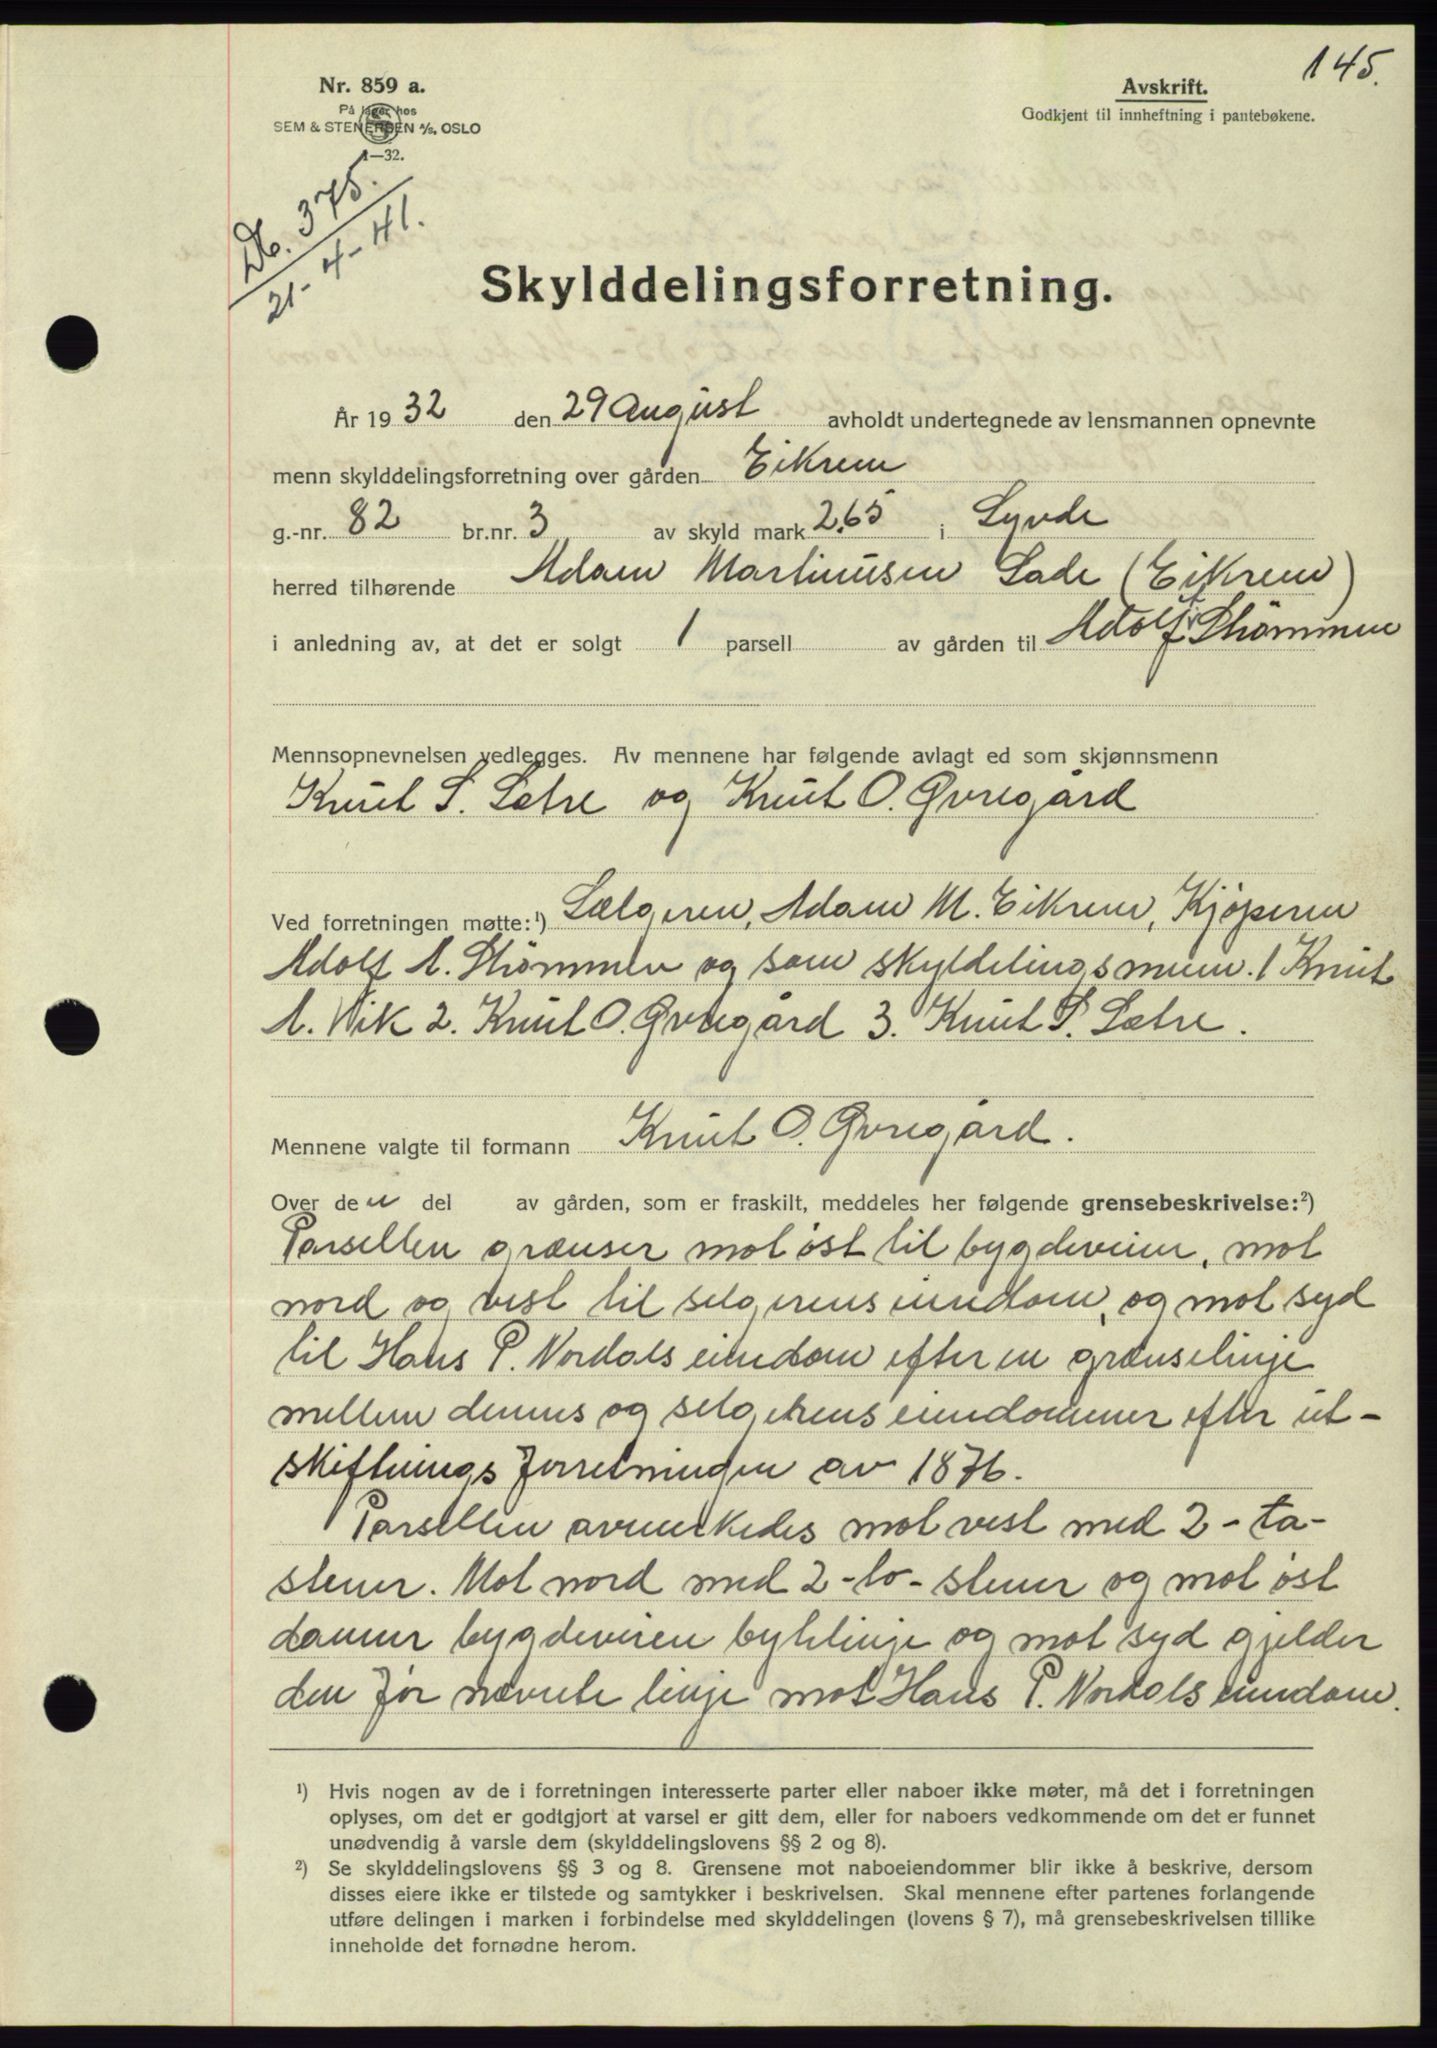 145.
Nr. 859 a.
På lager hos
SEM & STENERSEN A/S. OSLO
1—32.
Avskrift.
Godkjent til innheftning i pantebøkene.
Db. 375.
21-4-41.
Skylddelingsforretning.
År 1932 den 29 August avholdt undertegnede av lensmannen opnevnte
menn skylddelingsforretning over gården Eikrem
g.-nr. 82 br.nr. 3 av skyld mark 2.65 i Syvde
herred tilhørende Adam Martinusen Sade (Eikrem)
i anledning av, at det er solgt 1 parsell av gården til Adolf Strömmen
Mennsopnevnelsen vedlegges. Av mennene har følgende avlagt ed som skjønnsmenn
Knut S. Sætre og Knut O. Øvregård
Ved forretningen møtte:¹) Sælgeren, Adam M. Eikrem, Kjöperen
Adolf A. Strömmen og som skyldelingsmenn. 1 Knut
A. Vik 2. Knut O. Øvregård 3. Knut S. Sætre.
Mennene valgte til formann Knut O. Øvregård.
Over den del av gården, som er fraskilt, meddeles her følgende grensebeskrivelse:²)
Parsellen grænser mot öst til bygdeveien, mot
nord og vest til selgerens eiendom, og mot syd
til Hans P. Nordals eiendom efter en grænselinje
mellem dennes og selgerens eiendommer efter ut-
skiftnings forretningen av 1876.
Parsellen avmerkedes mot vest med 2-to-
stener. Mot nord med 2-to-stener og mot öst
danner bygdeveien bytelinje og mot syd gjelder
den før nævnte linje mot Hans P. Nordals eiendom.
¹) Hvis nogen av de i forretningen interesserte parter eller naboer ikke møter, må det i forretningen
oplyses, om det er godtgjort at varsel er gitt dem, eller for naboers vedkommende om det er funnet
unødvendig å varsle dem (skylddelingslovens §§ 2 og 8).
²) Se skylddelingslovens §§ 3 og 8. Grensene mot naboeiendommer blir ikke å beskrive, dersom
disses eiere ikke er tilstede og samtykker i beskrivelsen. Skal mennene efter partenes forlangende
utføre delingen i marken i forbindelse med skylddelingen (lovens § 7), må grensebeskrivelsen tillike
inneholde det fornødne herom.